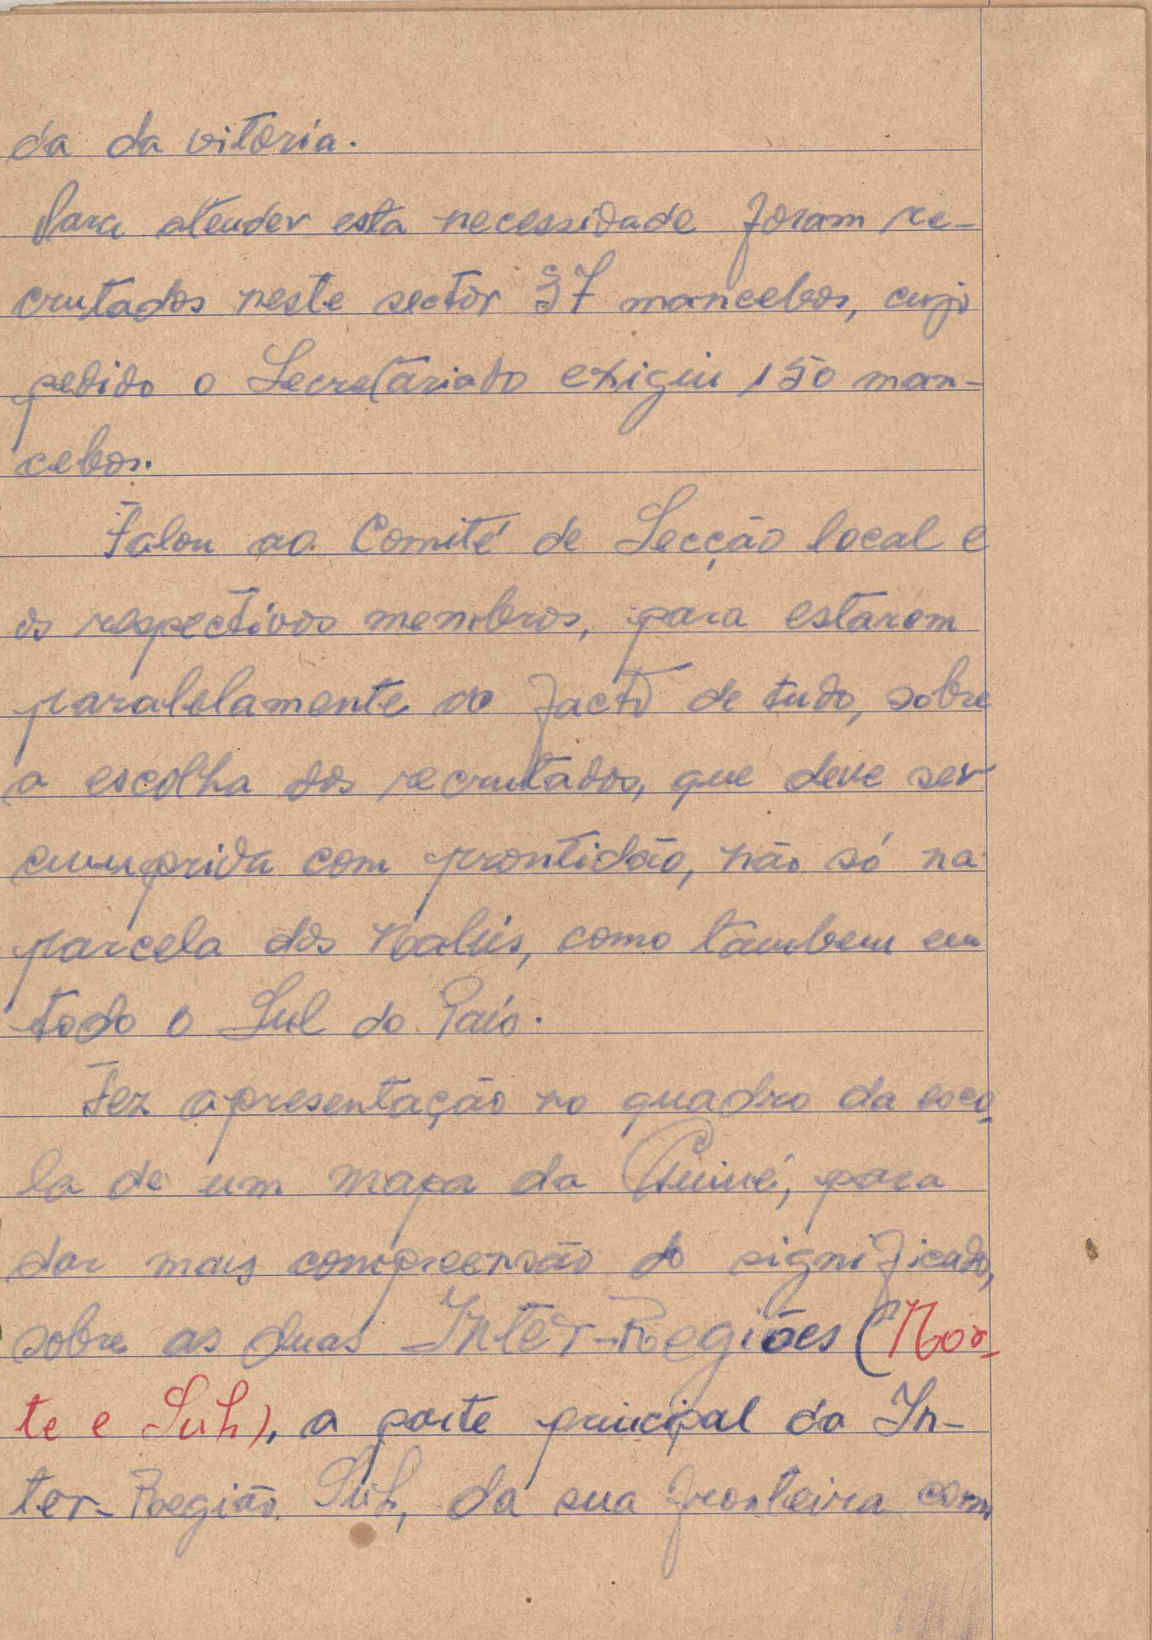 da da vitoria.
Para atender esta necessidade foram re-
crutados neste sector 37 mancebos, cujo
pedido o Secretáriado exigiu 150 man-
cebos.
Falou ao Comité de Secção local e
os respectivos membros, para estarem
paralelamente ao facto de tudo, sobre
a escolha dos recrutados, que deve ser
cumprida com prontidão, não só na
parcela dos Nalús, como tambem em
todo o Sul do País.
Fez apresentação no quadro da esco-
la de um mapa da Guiné, para
dar mais compreensão do significado,
sobre as duas Inter-Regiões (Nor-
te e Sul), a parte principal da In-
ter-Região Sul, da sua fronteira com